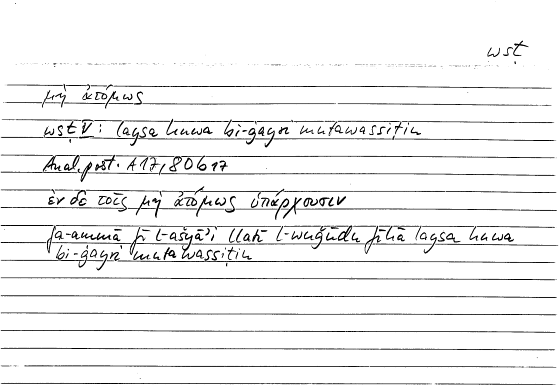 wsṭ
μὴ ἀτόμως
wsṭ V: laysa huwa bi-ġayri mutawassiṭin
Anal. post. A 17, 80b17
ἐν δὲ τοῖς μὴ ἀτόμως ὑπάρχουσιν
fa-ammā fī l-ašyāʾi llatī l-wuǧūdu fīhā laysa huwa
bi-ġayri mutawassiṭin